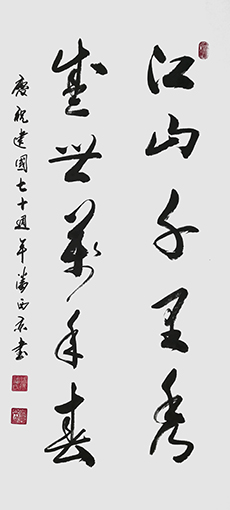 江山千里秀
盛世萬年春
慶祝建國七十週年潘西辰書